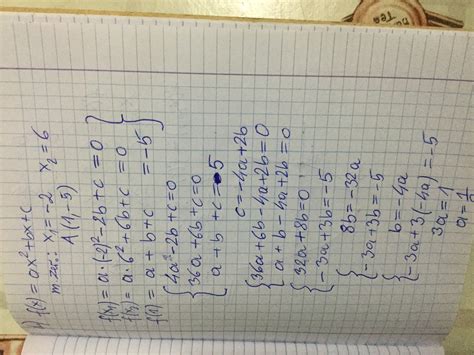 f(x) = ax²+bx+c
x₁ = -2 x₂ = 6
A(1,-5)
f(x₁) = a·(-2)²-2b+c = 0
f(x₂) = a·6²+6b+c = 0
f(1) = a+b+c = -5
4a-2b+c=0
36a+6b+c=0
a+b+c=-5
c=-4a+2b
36a+6b-4a+2b=0
a+b-4a+2b=0
32a+8b=0
-3a+3b=-5
8b=-32a
-3a+3b=-5
b=-4a
-3a+3(-4a)=-5
3a=1